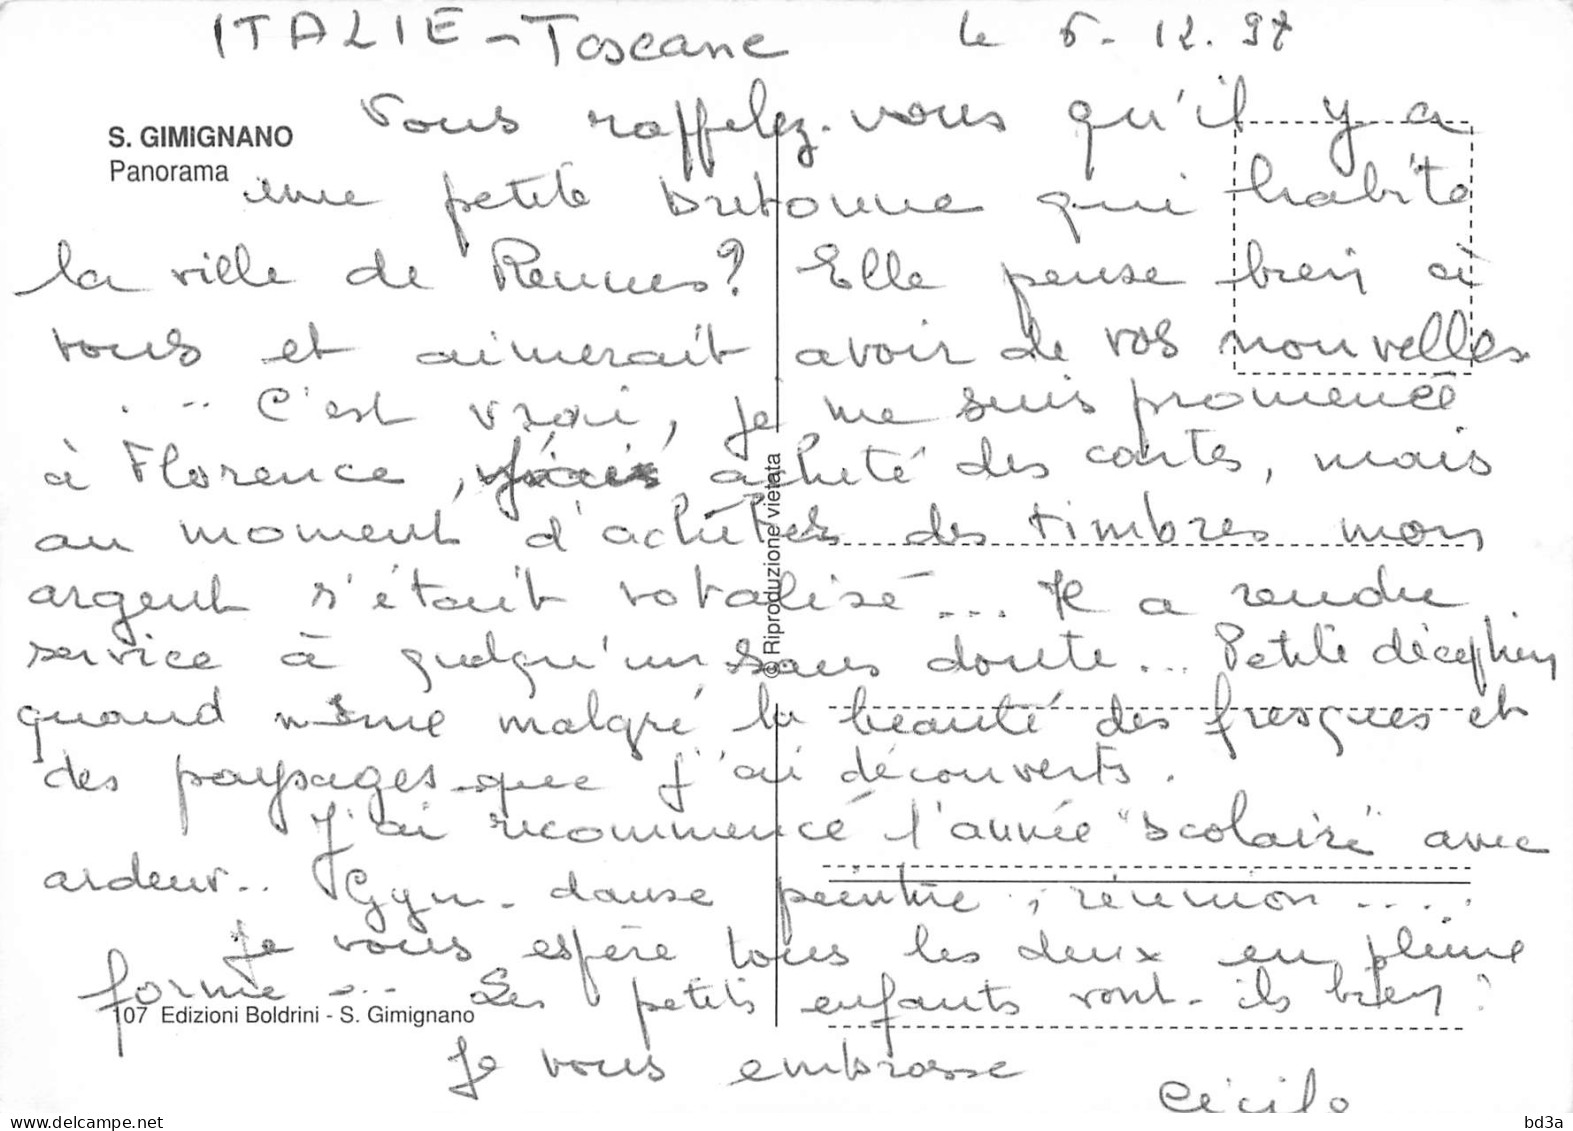 ITALIE - Toscane le 6-12.97
Vous rappelez-vous qu'il y a
S. GIMIGNANO
Panorama
une petite bretonne qui habite
la ville de Rennes? Elle pense bien à
vous et aimerait avoir de vos nouvelles
... C'est vrai, je me suis promenée
à Florence, j'ai acheté des cartes, mais
au moment d'acheter des timbres mon
argent s'était volatilisé... Il a rendu
service à quelqu'un sans doute... Petite déception
quand même malgré la beauté des fresques et
des paysages que j'ai découverts.
J'ai recommencé l'année "scolaire" avec
ardeur.. Gym - danse peinture, réunion....
Je vous espère tous les deux en pleine
forme... Les petits enfants vont-ils bien?
107 Edizioni Boldrini - S. Gimignano
Je vous embrasse
Cécile
© Riproduzione vietata
delcampe.net
bd3a